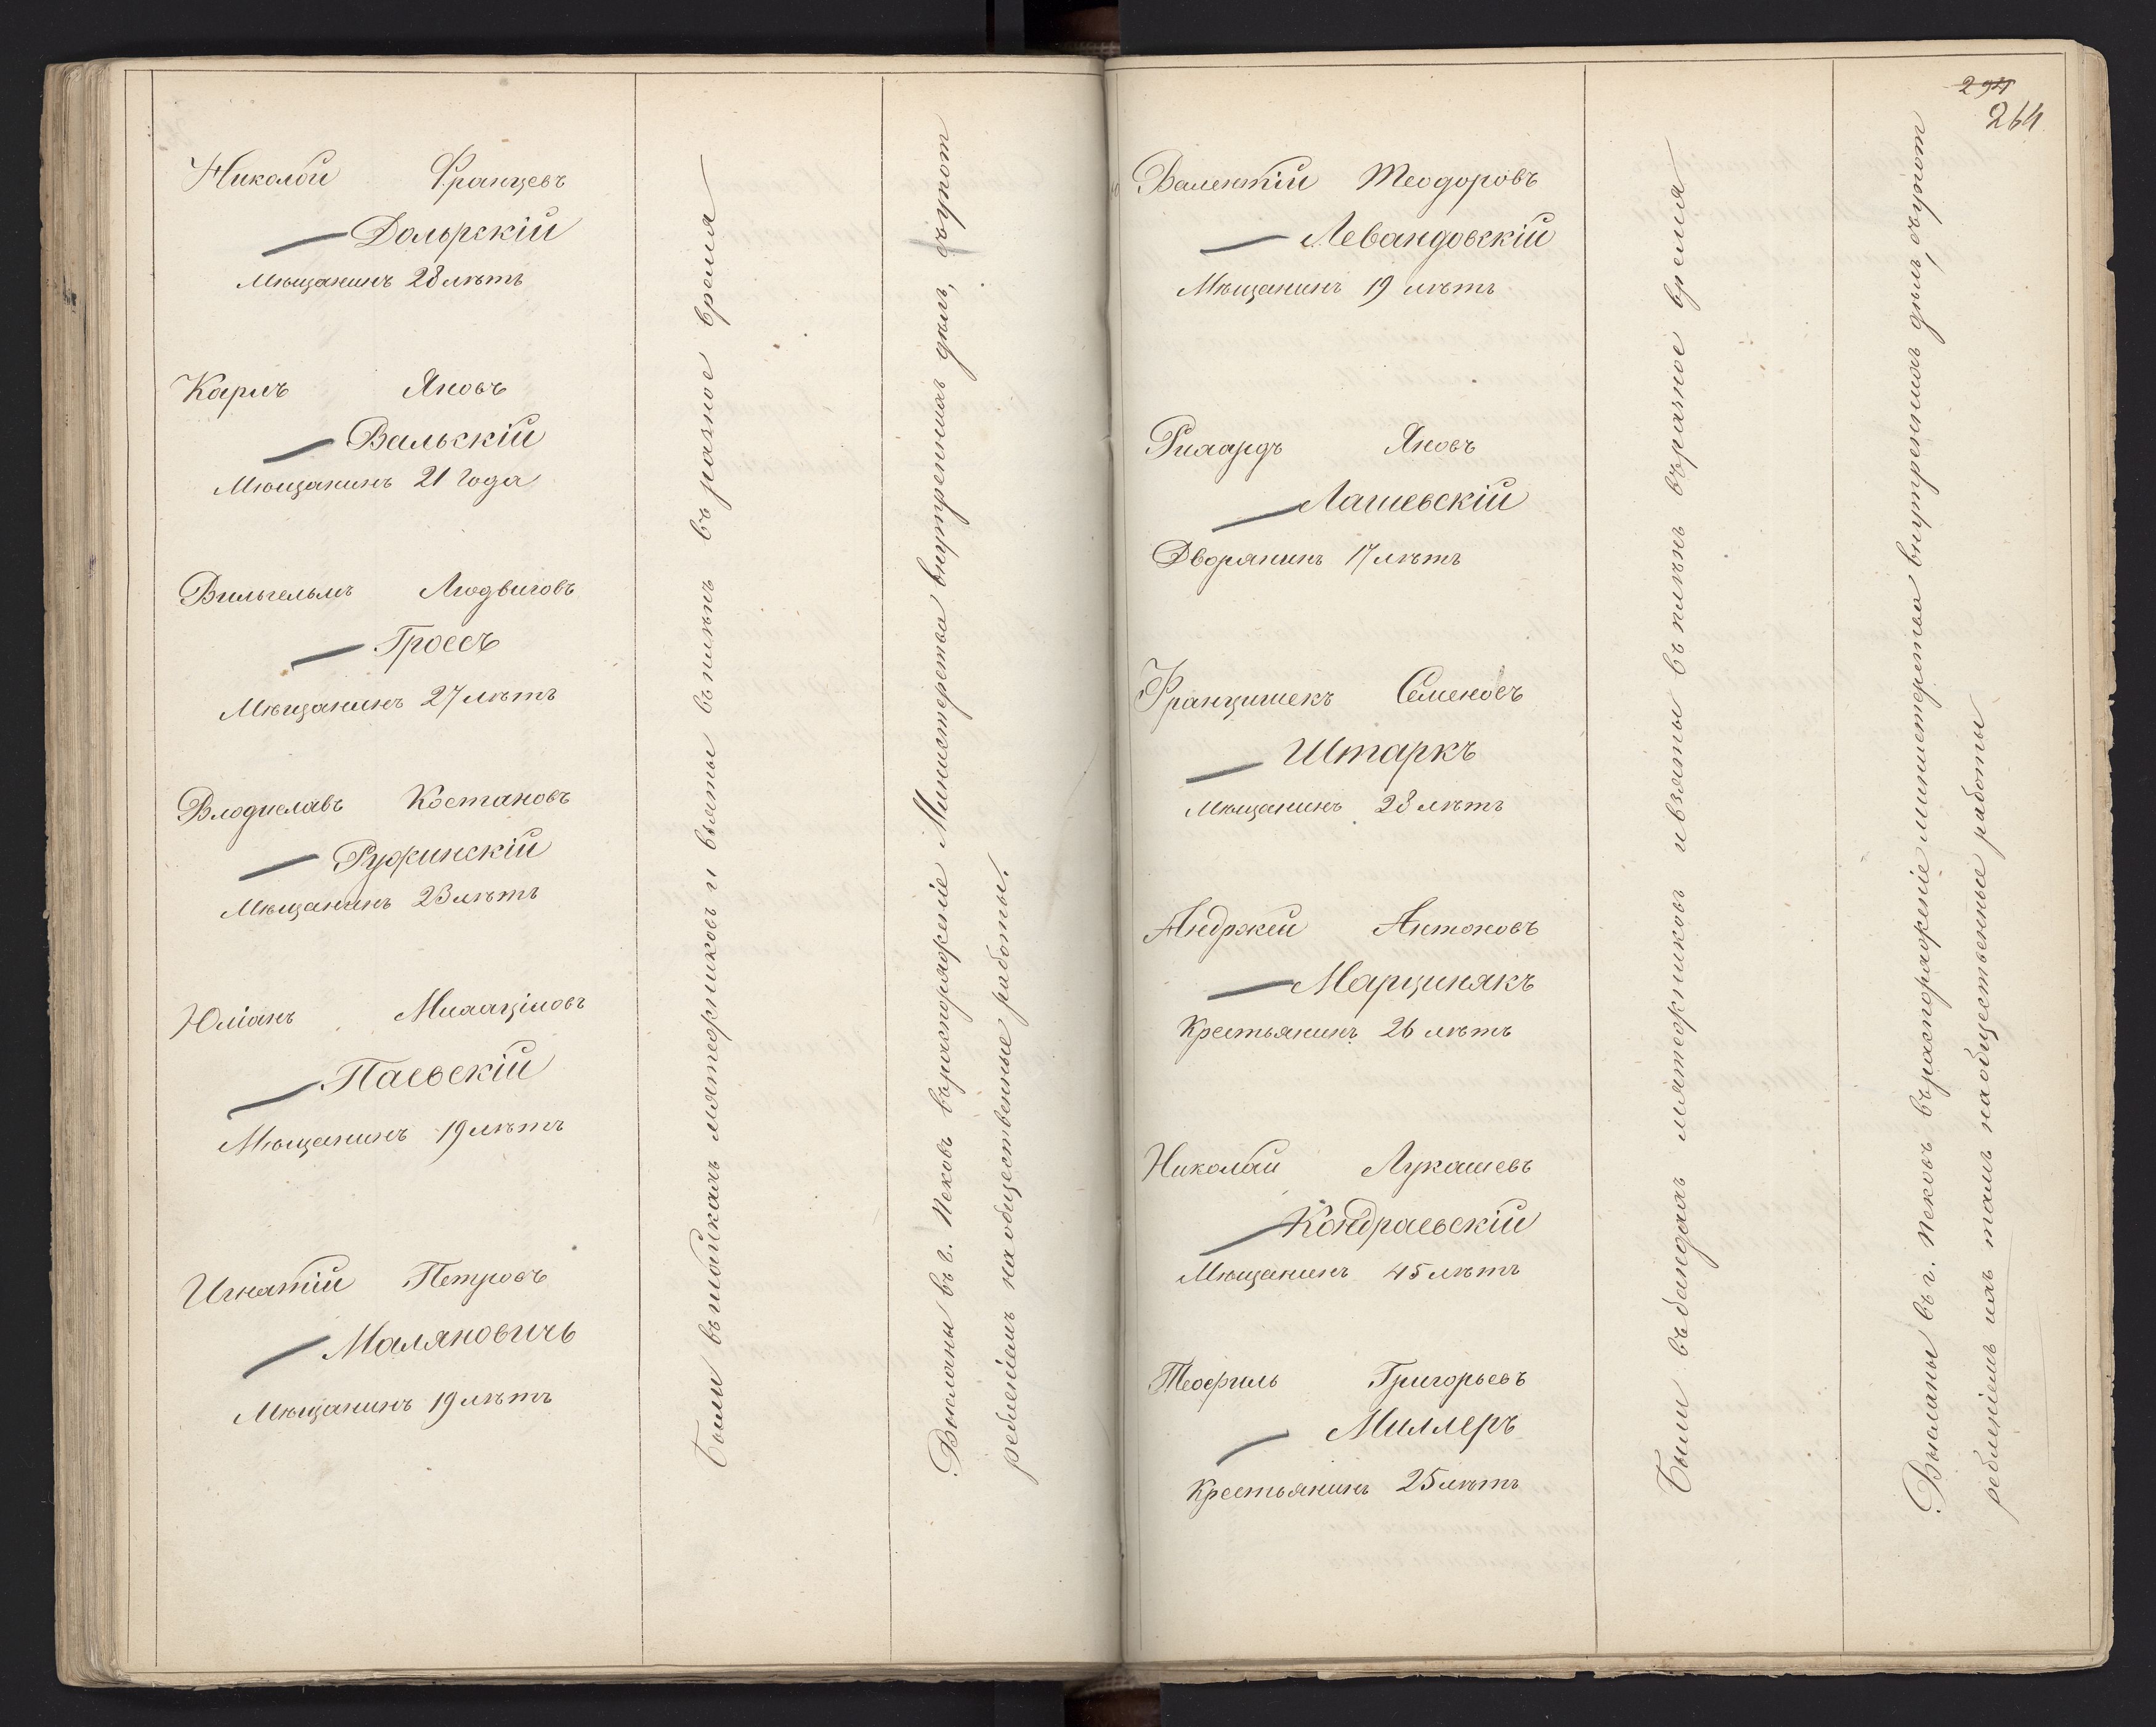 Николай Францевъ
Дольрскій
Мѣщанинъ 28 лѣтъ
Карлъ Яновъ
Вальскій
Мѣщанинъ 21 года
Вильгельмъ Людвиговъ
Гроссъ
Мѣщанинъ 27 лѣтъ
Влодиславъ Костановъ
Ружинскій
Мѣщанинъ 23 лѣтъ
Юліанъ
Паевскій
Мѣщанинъ 19 лѣтъ
Игнатій Петровъ
Маляновичь
Мѣщанинъ 19 лѣтъ
Были въ шайкахъ мятежниковъ и взяты въ плѣнъ въ разное время
Высланы въ г. Псковъ въ распоряженіе Министерства внутреннихъ дѣлъ, съ упот
ребленіемъ на общественные работы.
294
264
Валентій Теодоровъ
Левандовскій
Мѣщанинъ 19 лѣтъ
Рихардъ Яновъ
Лашевскій
Дворянинъ 17 лѣтъ
Францишекъ Семеновъ
Штаркъ
Мѣщанинъ 28 лѣтъ
Андржей Антоновъ
Марцинякъ
Крестьянинъ 26 лѣтъ
Николай Лукашевъ
Кондраевскій
Мѣщанинъ 45 лѣтъ
Теофиль Григорьевъ
Миллеръ
Крестьянинъ 25 лѣтъ
Были въ бандахъ мятежниковъ и взяты въ плѣнъ въ разное время
Высланы въ г. Псковъ въ распоряженіе министерства внутреннихъ дѣлъ, съ упот
ребленіемъ ихъ тамъ на общественные работы